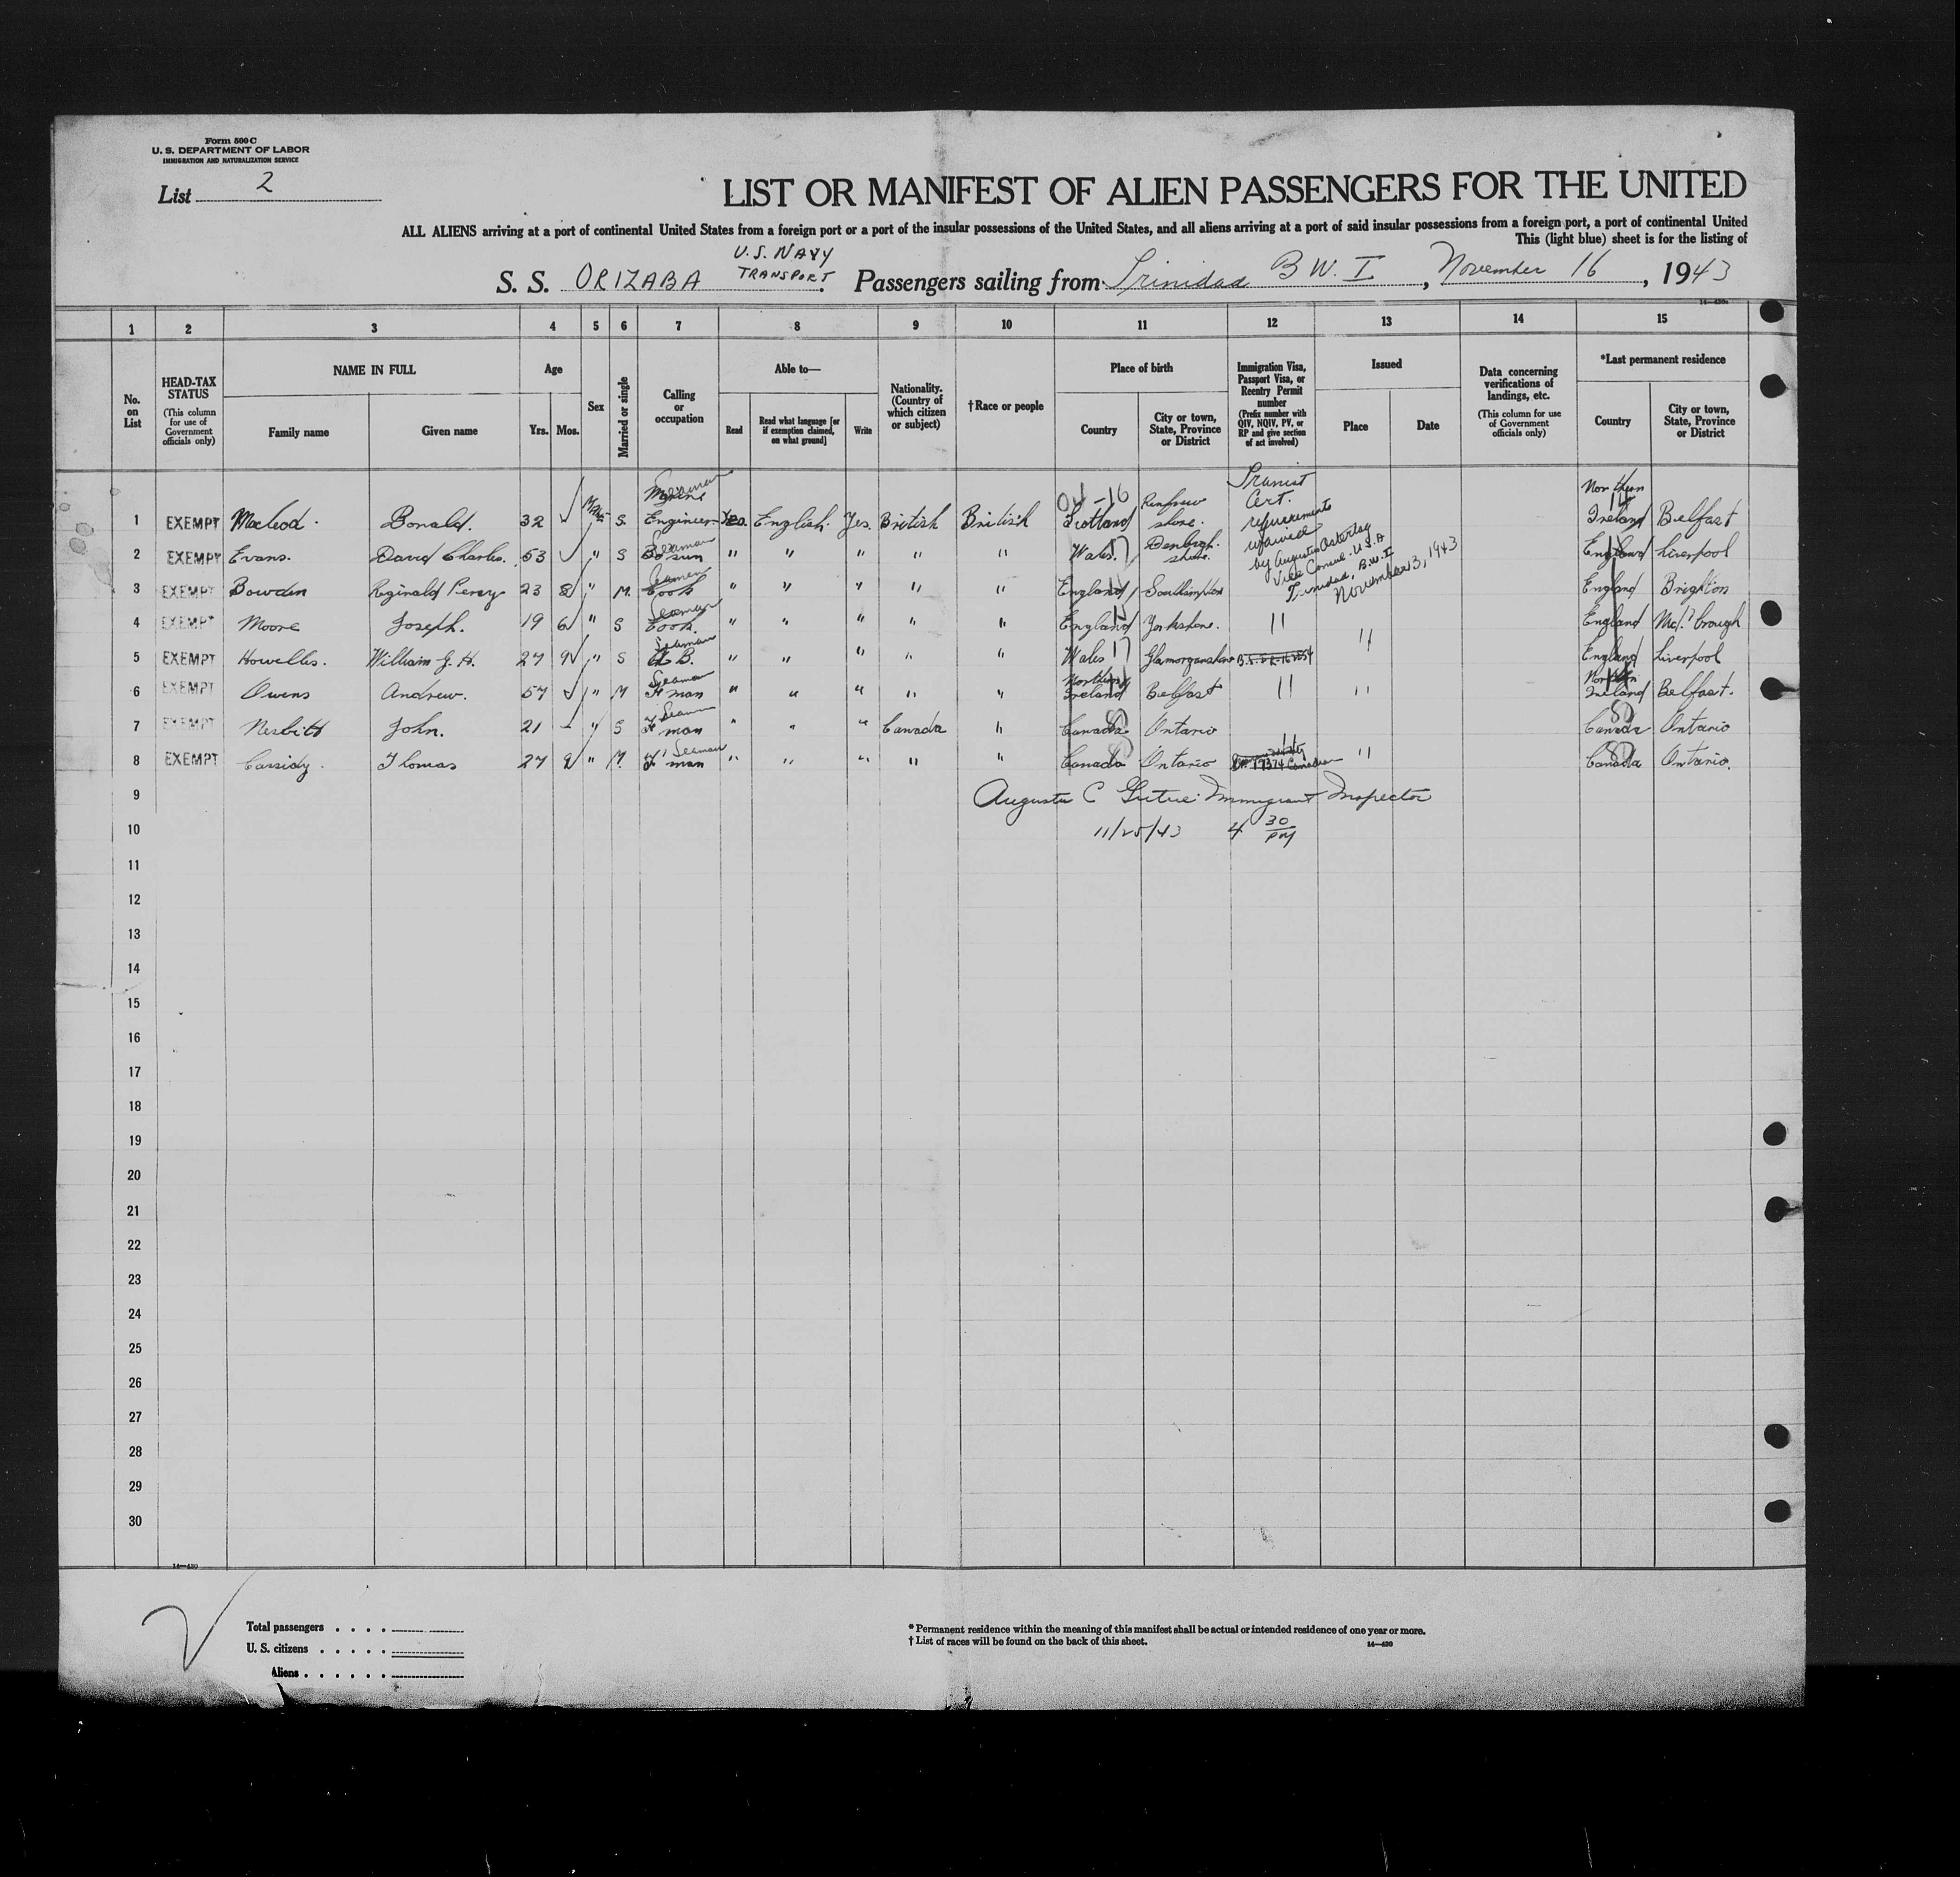 Form 500 C
U. S. DEPARTMENT OF LABOR
IMMIGRATION AND NATURALIZATION SERVICE
List 2
LIST OR MANIFEST OF ALIEN PASSENGERS FOR THE UNITED
ALL ALIENS arriving at a port of continental United States from a foreign port or a port of the insular possessions of the United States, and all aliens arriving at a port of said insular possessions from a foreign port, a port of continental United
This (light blue) sheet is for the listing of
S. S. ORIZABA U.S. NAVY TRANSPORT. Passengers sailing from Trinidad B W. I, November 16, 1943
14—430
1 2 3 4 5 6 7 8 9 10 11 12 13 14 15
No. on List
HEAD-TAX STATUS (This column for use of Government officials only)
NAME IN FULL
Family name Given name
Age
Yrs. Mos.
Sex
Married or single
Calling or occupation
Able to—
Read Read what language [or if exemption claimed, on what ground] Write
Nationality. (Country of which citizen or subject)
†Race or people
Place of birth
Country City or town, State, Province or District
Immigration Visa, Passport Visa, or Reentry Permit number (Prefix number with QIV, NQIV, PV, or RP and give section of act involved)
Issued
Place Date
Data concerning verifications of landings, etc. (This column for use of Government officials only)
*Last permanent residence
Country City or town, State, Province or District
1 EXEMPT Macleod. Donald. 32 S. Marine Engineer Seaman Yes. English. Yes. British British Scotland Renfrew shire. Northern Ireland Belfast
Transit Cert. requirements waived by Augustus Osterlag Vice Consul. U.S.A Trinidad, B.W.I. November 3, 1943
2 EXEMPT Evans. David Charles. 53 " S Bo'sun Seaman " " " " " Wales. 17 Denbigh. shire. England Liverpool
3 EXEMPT Bowden Reginald Percy 23 8 " M. Cook Seaman " " " " " England Southampton England Brighton
4 EXEMPT Moore Joseph. 19 6 " S Cook. Seaman " " " " " England Yorkshire. " England Md'brough
5 EXEMPT Howells. William J. H. 27 9 " S A. B. Seaman " " " " " Wales 17 Glamorganshire " England Liverpool
6 EXEMPT Owens Andrew. 57 " M F'man Seaman " " " " " Northern Ireland Belfast " " Northern Ireland Belfast.
7 EXEMPT Nesbitt John. 21 - " S F'man Seaman " " " Canada " Canada Ontario Canada Ontario
8 EXEMPT Cassidy. Thomas 27 9 " M. F'man Seaman " " " " " Canada Ontario " " Canada Ontario.
9 Augusta C Immigrant Inspector
10 11/25/43 4 30 PM
11
12
13
14
15
16
17
18
19
20
21
22
23
24
25
26
27
28
29
30
14—430
Total passengers . . . .
U. S. citizens . . . . .
Aliens . . . . . .
* Permanent residence within the meaning of this manifest shall be actual or intended residence of one year or more.
† List of races will be found on the back of this sheet. 14—430